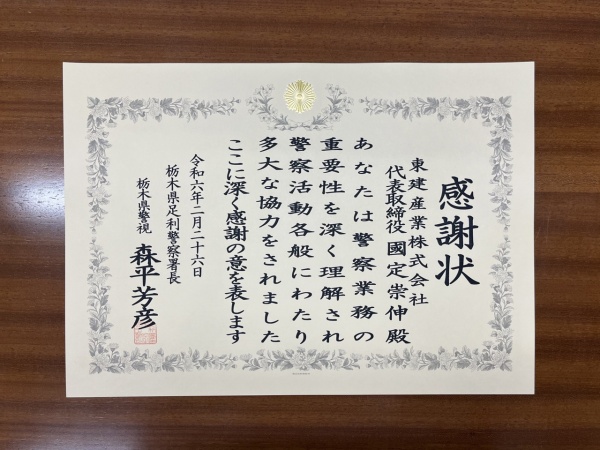 感謝状
東建産業株式会社
代表取締役 國定崇伸 殿
あなたは警察業務の
重要性を深く理解され
警察活動各般にわたり
多大な協力をされました
ここに深く感謝の意を表します
令和六年二月二十六日
栃木県足利警察署長
栃木県警視 森平芳彦